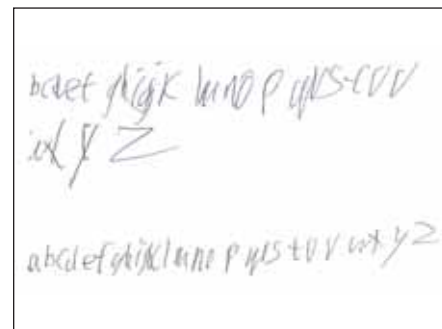 bcdef ghijk lmno p qrs tuv
wx y z
abcdefghijklmno p qrs tuv wx y z